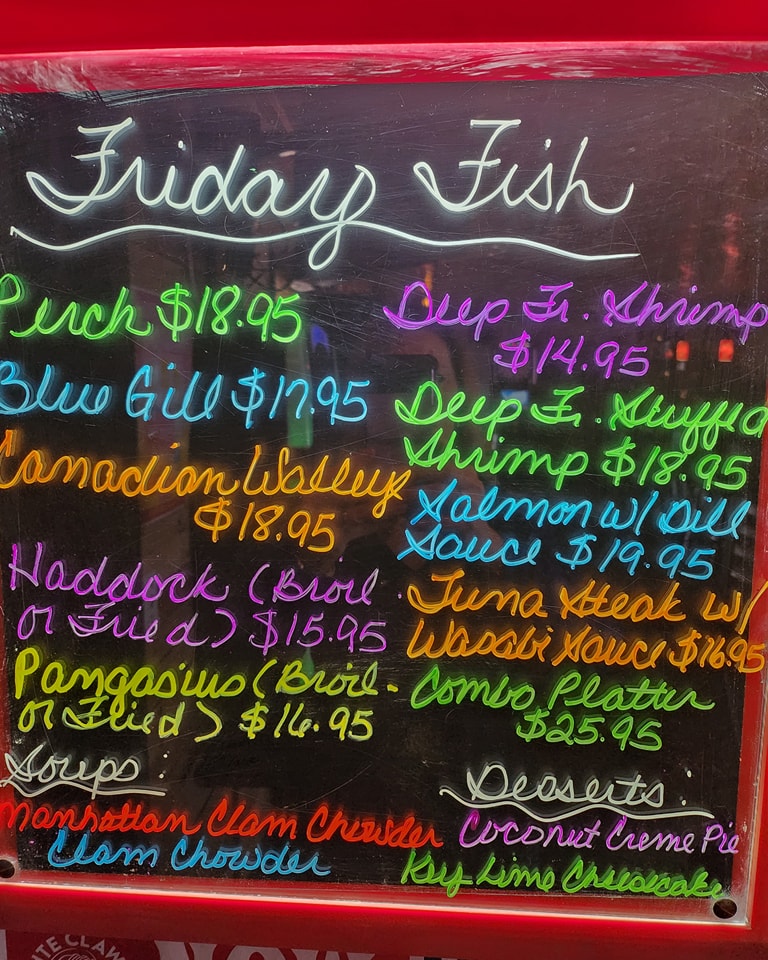 Friday Fish
Perch $18.95
Blue Gill $17.95
Canadian Walleye
$18.95
Haddock (Broil
or Fried) $15.95
Pangasius (Broil-
or Fried) $16.95
Deep Fr. Shrimp
$14.95
Deep Fr. Stuffed
Shrimp $18.95
Salmon w/ Dill
Sauce $19.95
Tuna Steak w/
Wasabi Sauce $16.95
Combo Platter
$25.95
Soups:
Manhattan Clam Chowder
Clam Chowder
Desserts:
Coconut Creme Pie
Key Lime Cheesecake
ITE CLAW